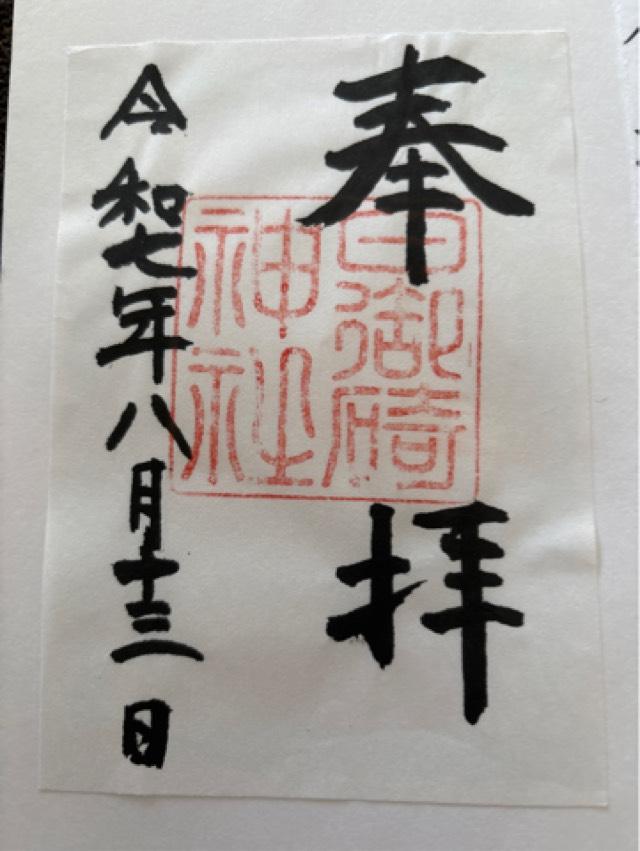 奉拝
日御碕
神社
令和七年八月十三日